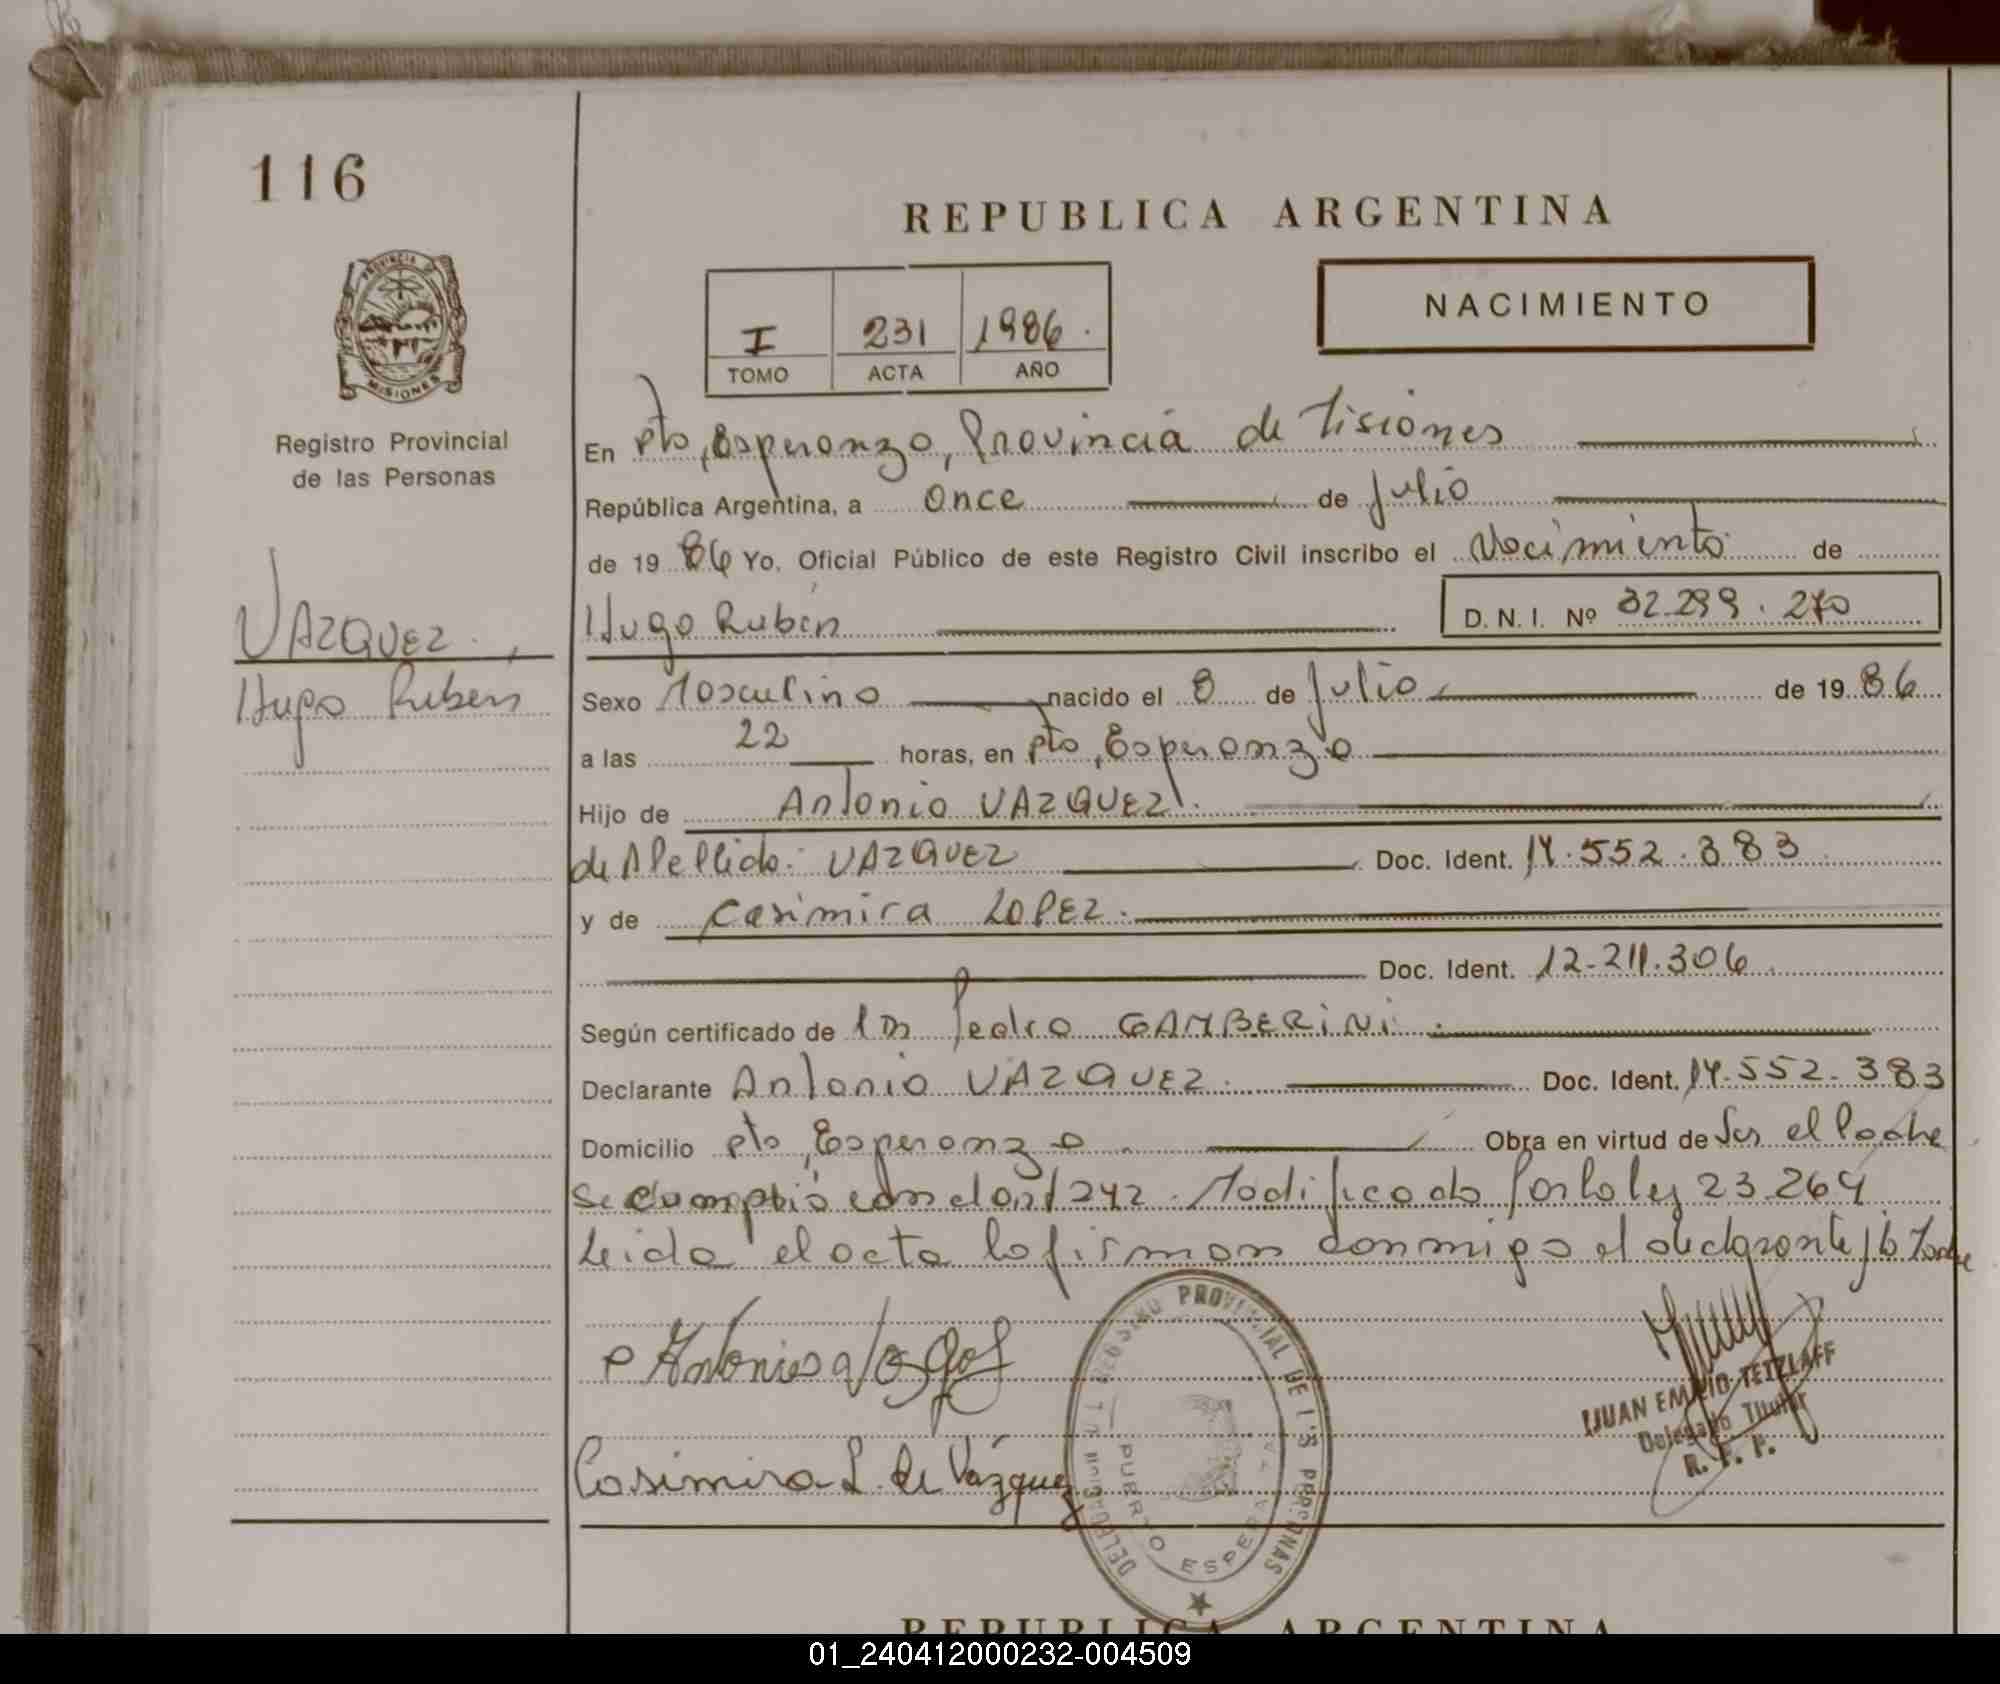 116
REPUBLICA ARGENTINA
NACIMIENTO
I 231 1986.
TOMO ACTA AÑO
PROVINCIA D
MISIONES
Registro Provincial
de las Personas
En Pto, Esperanza, Provincia de Misiones
República Argentina, a Once de Julio
de 19 86 Yo, Oficial Público de este Registro Civil inscribo el Nacimiento de
VAZQUEZ,
Hugo Rubén
Hugo Rubén D. N. I. Nº 32.299.270
Sexo Masculino nacido el 8 de Julio de 19 86
a las 22 horas, en Pto, Esperanza
Hijo de Antonio VAZQUEZ.
de Apellido: VAZQUEZ Doc. Ident. 14.552.383
y de Casimira LOPEZ.
Doc. Ident. 12.211.306
Según certificado de Pedro GAMBERINI.
Declarante Antonio VAZQUEZ. Doc. Ident. 14.552.383
Domicilio Pto, Esperanza Obra en virtud de Ser el Padre
se cumplió con el art 242. Modificado por la ley 23.264
Leida el acta la firman conmigo el declarante y la Madre
Antonio
Casimira L. de Vázquez
REGISTRO PROVINCIAL DE LAS PERSONAS
PUERTO ESPERANZA
JUAN EMILIO TETZLAFF
Delegado Titular
R. P. P.
REPUBLICA ARGENTINA
01_240412000232-004509